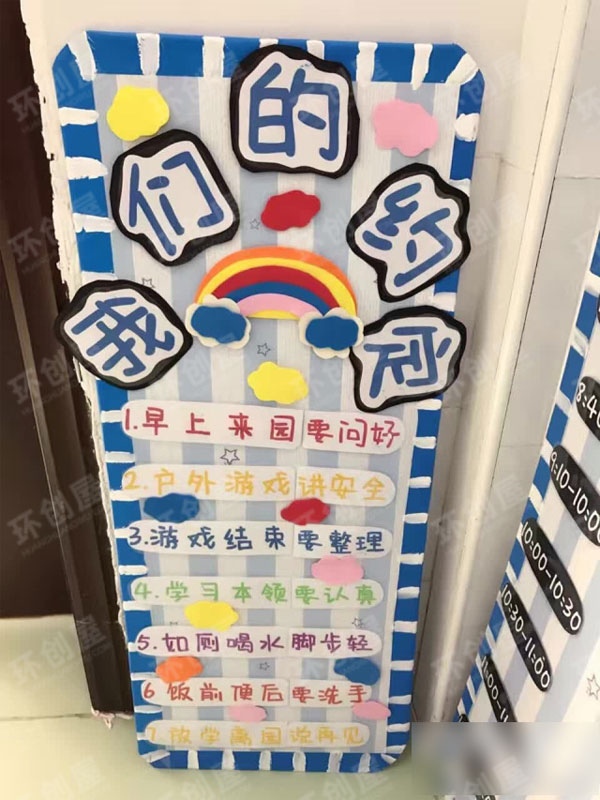 我们的约定
1.早上来园要问好
2.户外游戏讲安全
3.游戏结束要整理
4.学习本领要认真
5.如厕喝水脚步轻
6 饭前便后要洗手
7.放学离园说再见
8:40
9:10-10:00
10:00-10:30
10:30-11:00
11:00-11
环创屋